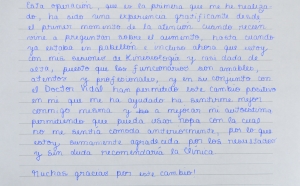 Esta operación, que es la primera que me he realiza-
do, ha sido una experiencia gratificante desde
el primer momento de la atención cuando recién
vine a preguntar sobre el aumento, hasta cuando
ya estaba en pabellón e incluso ahora que estoy
con mis sesiones de Kinesiología y ya dada de
alta, puesto que los funcionarios son amables,
atentos y profesionales, y en su conjunto con
el Doctor Vidal han permitido este cambio positivo
en mi que me ha ayudado ha sentirme mejor
conmigo misma y a mejorar mi autoestima,
permitiendo que pueda usar ropa con la cual
no me sentía cómoda anteriormente, por lo que
estoy, sumamente agradecida por los resultados
y sin duda recomendaría la clínica.
Muchas gracias por este cambio!